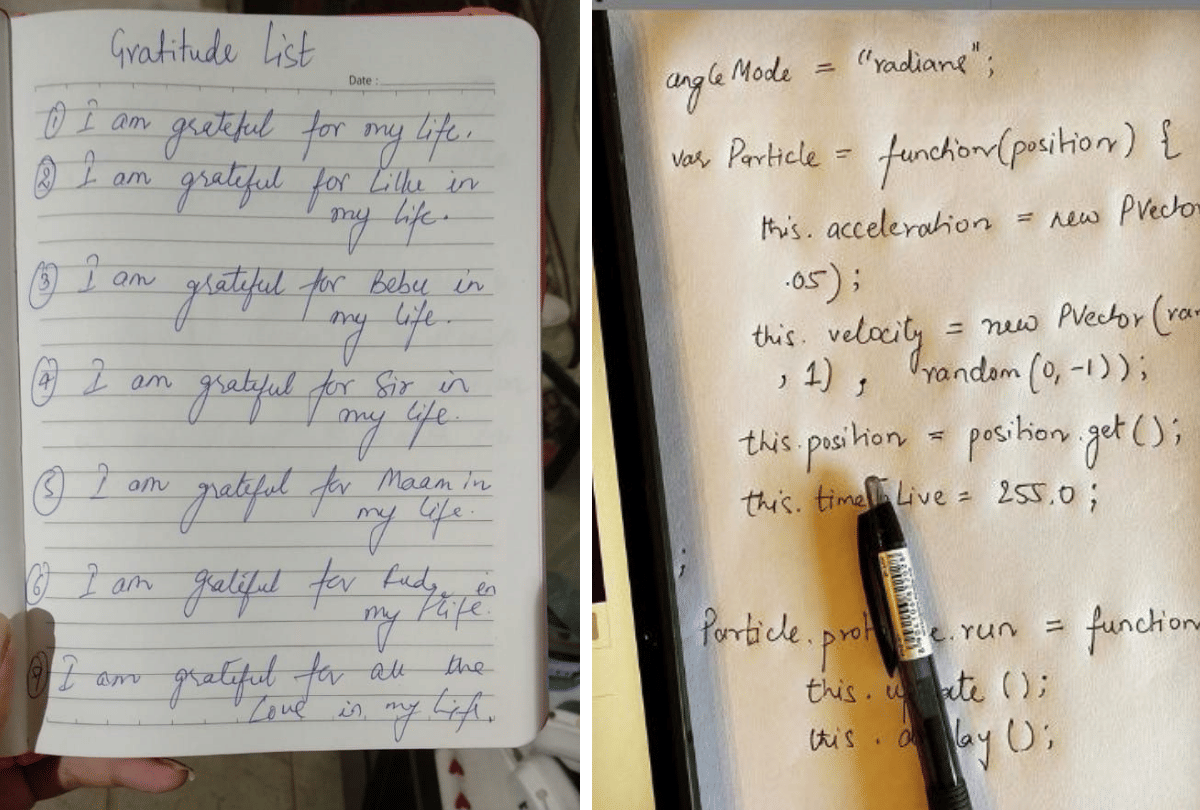 Gratitude List
Date :
① I am grateful for my life.
② I am grateful for Lillu in
my life.
③ I am grateful for Bebu in
my life.
④ I am grateful for Sir in
my life.
⑤ I am grateful for Maam in
my life.
⑥ I am grateful for in
my life.
⑦ I am grateful for all the
Love in my life.
angleMode = "radians";
var Particle = function(position) {
this. acceleration = new PVecto
.05);
this. velocity = new PVector(ran
, 1) , random (0, -1));
this.position = position.get();
this. time Live = 255.0 ;
;
Particle. prot e. run = function
this. up ate ();
this . d lay ();